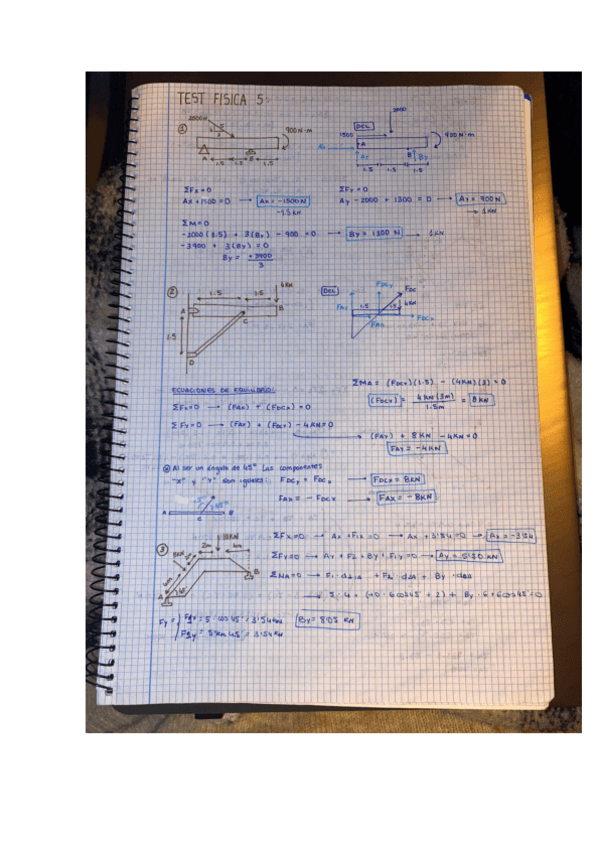 TEST FISICA 5
①
2000N
900 N·m
A 1.5 1.5 B 1.5
DCL
2000
1500
900 N·m
Ax
A
Ay
B
By
1.5 1.5 1.5
ΣFx = 0
Ax + 1500 = 0 → Ax = -1500 N
-1.5 kN
ΣFy = 0
Ay - 2000 + 1300 = 0 → Ay = 700 N
→ 1 kN
ΣM = 0
-2000 (1.5) + 3(By) - 900 = 0 → By = 1300 N → 1 kN
-3900 + 3(By) = 0
By = +3900 / 3
②
1.5 1.5 4KN
A B
C
1.5
D
DCL
FDCy FDC
FAx 1.5 1.5 4KN
FDCx
FAy
ECUACIONES DE EQUILIBRIO:
ΣMA = (FDCy)(1.5) - (4KN)(3) = 0
(FDCy) = 4KN(3m) / 1.5m = 8KN
ΣFx=0 → (FAx) + (FDCx) = 0
ΣFy=0 → (FAy) + (FDCy) - 4KN=0
(FAy) + 8KN - 4KN = 0
FAy = -4KN
Al ser un ángulo de 45° las componentes
"x" y "y" son iguales: FDCy = FDCx → FDCx = 8KN
FAx = - FDCx → FAx = - 8KN
45°
A C B
③
5KN 2m 4m
4m
A B
ΣFx=0 → Ax + F1x = 0 → Ax + 3'54=0 → Ax = -3'54
ΣFy=0 → Ay + F2 + By + F1y = 0 → Ay = 5'50 KN
ΣMA=0 → F1·d1A + F2·d2A + By·dBA
Fy = F1x = 5·cos45 = 3'54KN
F1y = 5 sin 45 = 3'54 KN